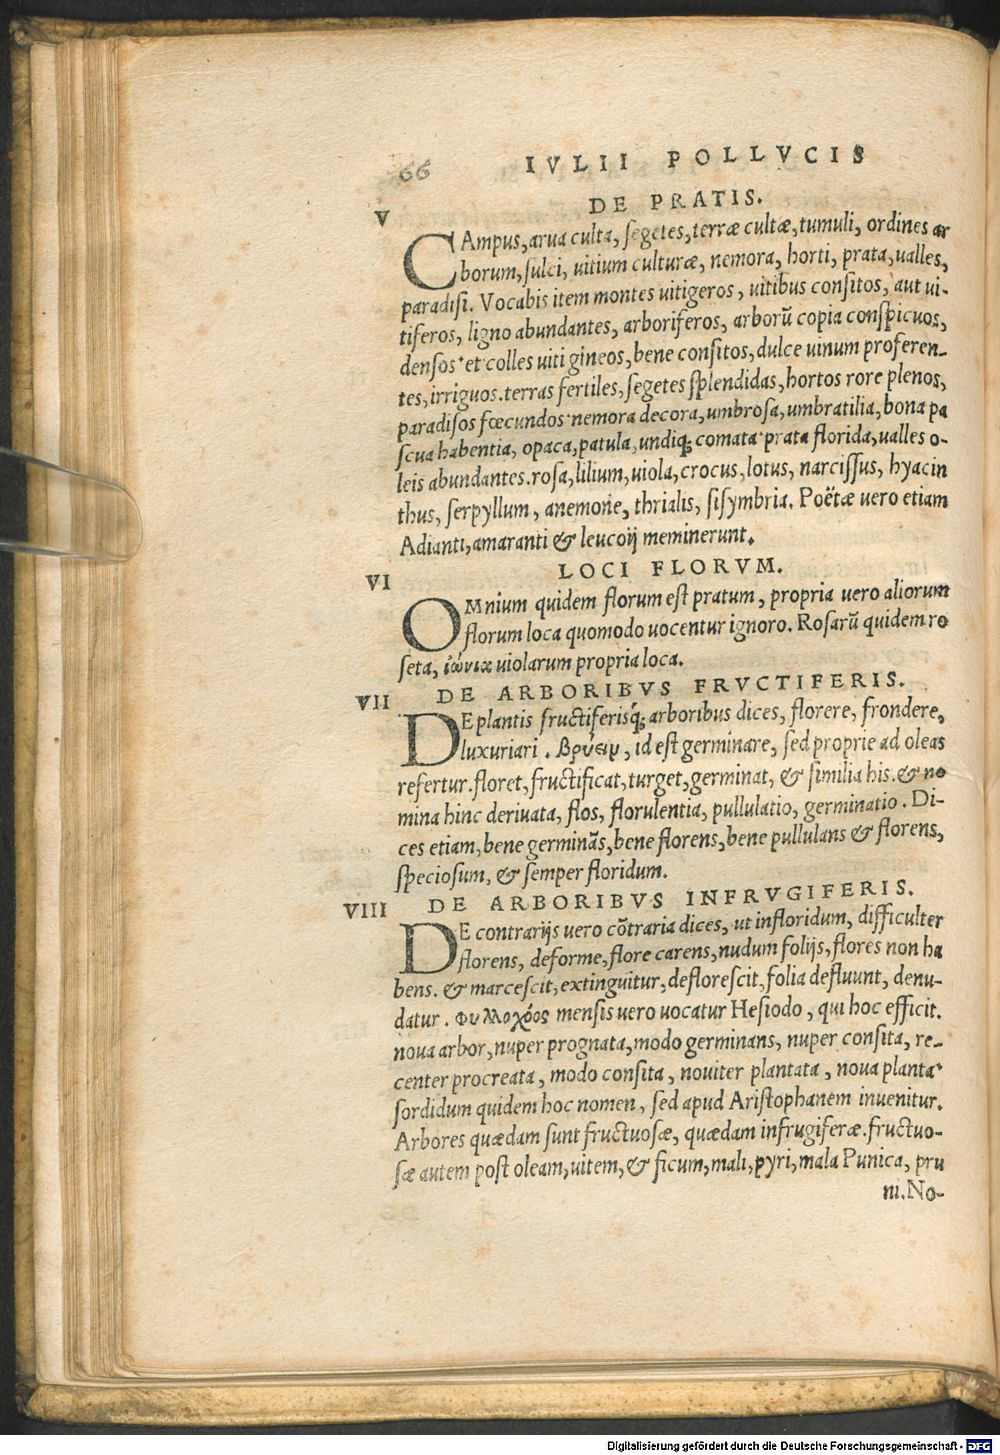 66 IVLII POLLVCIS
DE PRATIS.
V
CAmpus, arua culta, segetes, terræ cultæ, tumuli, ordines ar
borum, sulci, uitium culturæ, nemora, horti, prata, ualles,
paradisi. Vocabis item montes uitigeros, uitibus consitos, aut ui-
tiferos, ligno abundantes, arboriferos, arborū copia conspicuos,
densos· et colles uitigineos, bene consitos, dulce uinum proferen-
tes, irriguos. terras fertiles, segetes splendidas, hortos rore plenos,
paradisos fœcundos· nemora decora, umbrosa, umbratilia, bona pa
scua habentia, opaca, patula, undiq; comata· prata florida, ualles o-
leis abundantes. rosa, lilium, uiola, crocus, lotus, narcissus, hyacin
thus, serpyllum, anemone, thrialis, sisymbria. Poëtæ uero etiam
Adianti, amaranti & leucoij meminerunt.
LOCI FLORVM.
VI
OMnium quidem florum est pratum, propria uero aliorum
florum loca quomodo uocentur ignoro. Rosarū quidem ro
seta, ἰώνια uiolarum propria loca.
DE ARBORIBVS FRVCTIFERIS.
VII
DE plantis fructiferisq́; arboribus dices, florere, frondere,
luxuriari. Βρύειν, id est germinare, sed proprie ad oleas
refertur. floret, fructificat, turget, germinat, & similia his. & no
mina hinc deriuata, flos, florulentia, pullulatio, germinatio. Di-
ces etiam, bene germinãs, bene florens, bene pullulans & florens,
speciosum, & semper floridum.
DE ARBORIBVS INFRVGIFERIS.
VIII
DE contrarijs uero cõtraria dices, ut infloridum, difficulter
florens, deforme, flore carens, nudum folijs, flores non ha
bens. & marcescit, extinguitur, deflorescit, folia defluunt, denu-
datur. Φυλλοχόος mensis uero uocatur Hesiodo, qui hoc efficit.
noua arbor, nuper prognata, modo germinans, nuper consita, re-
center procreata, modo consita, nouiter plantata, noua planta·
sordidum quidem hoc nomen, sed apud Aristophanem inuenitur.
Arbores quædam sunt fructuosæ, quædam infrugiferæ. fructuo-
sæ autem post oleam, uitem, & ficum, mali, pyri, mala Punica, pru
ni. No-
Digitalisierung gefördert durch die Deutsche Forschungsgemeinschaft - DFG